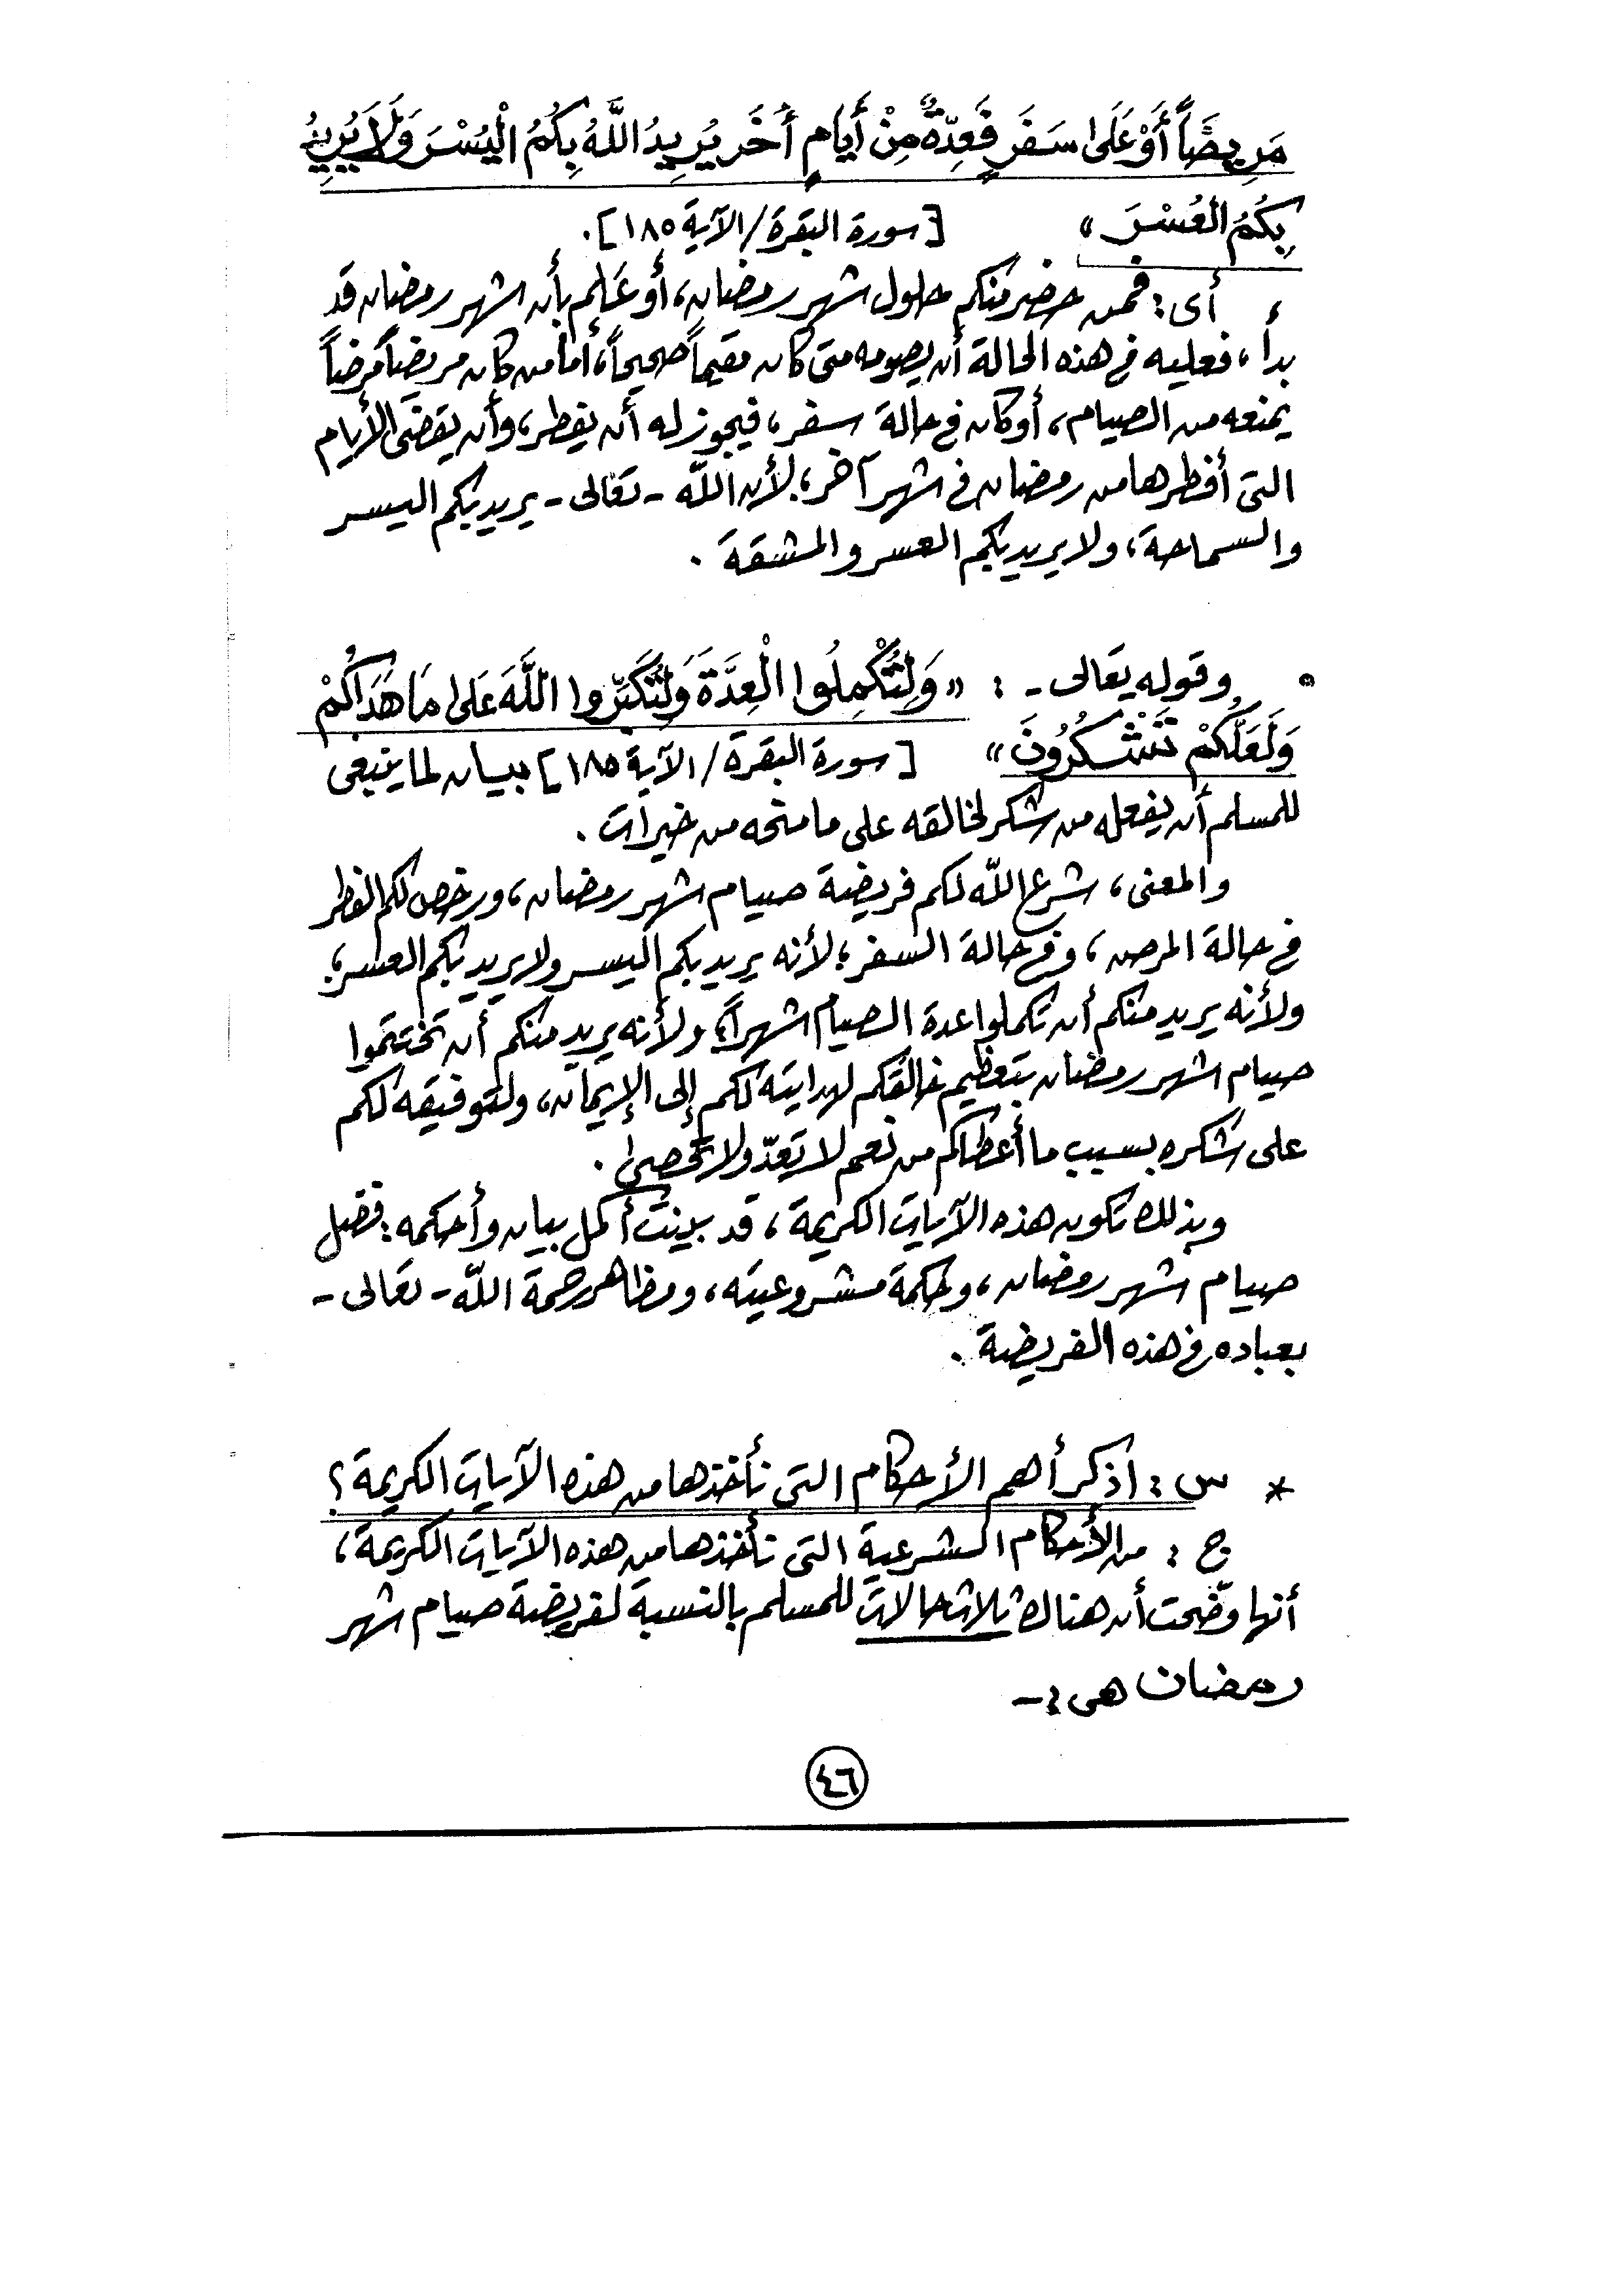 مَرِيضًاً أَوْ عَلَى سَفَرٍ فَعِدَّةٌ مِنْ أَيَّامٍ أُخَرَ يُرِيدُ اللَّهُ بِكُمُ الْيُسْرَ وَلَا يُرِيدُ
بِكُمُ الْعُسْرَ » [سورة البقرة/الآية ١٨٥].
أى: فمن حضر منكم حلول شهر رمضان، أو عَلِم بأن شهر رمضان قد
بدأ، فعليه فى هذه الحالة أن يصومه متى كان مقيماً صحيحاً، أما من كان مريضاً مرضاً
يمنعه من الصيام، أو كان فى حالة سفر، فيجوز له أن يفطر، وأن يقضى الأيام
التى أفطرها من رمضان فى شهر آخر؛ لأن اللّه - تعالى - يريد بكم اليسر
والسماحة، ولا يريد بكم العسر والمشقة .
• وقوله تعالى - : « وَلِتُكْمِلُوا الْعِدَّةَ وَلِتُكَبِّرُوا اللَّهَ عَلَى مَا هَدَاكُمْ
وَلَعَلَّكُمْ تَشْكُرُونَ » [سورة البقرة / الآية ١٨٥] بيان لما ينبغى
للمسلم أن يفعله من شكر لخالقه على ما منحه من خيرات .
والمعنى، شرع اللّه لكم فريضة صيام شهر رمضان، ورخص لكم الفطر
فى حالة المرض، وفى حالة السفر؛ لأنه يريد بكم اليسر ولا يريد بكم العسر؛
ولأنه يريد منكم أن تكملوا عدة الصيام شهراً؛ ولأنه يريد منكم أن تختتموا
صيام شهر رمضان بتعظيم خالقكم لهدايته لكم إلى الإيمان، ولتوفيقه لكم
على شكره بسبب ما أعطاكم من نعم لا تعدّ ولا تحصى .
وبذلك تكون هذه الآيات الكريمة، قد بينت أكمل بيان وأحكمه: فضل
صيام شهر رمضان، وحكمة مشروعيته، ومظاهر رحمة اللّه - تعالى -
بعباده فى هذه الفريضة .
* س : اذكر أهم الأحكام التى نأخذها من هذه الآيات الكريمة ؟
ج : من الأحكام الشرعية التى نأخذها من هذه الآيات الكريمة،
أنها وضّحت أن هناك ثلاث حالات للمسلم بالنسبة لفريضة صيام شهر
رمضان هى :-
٤٦